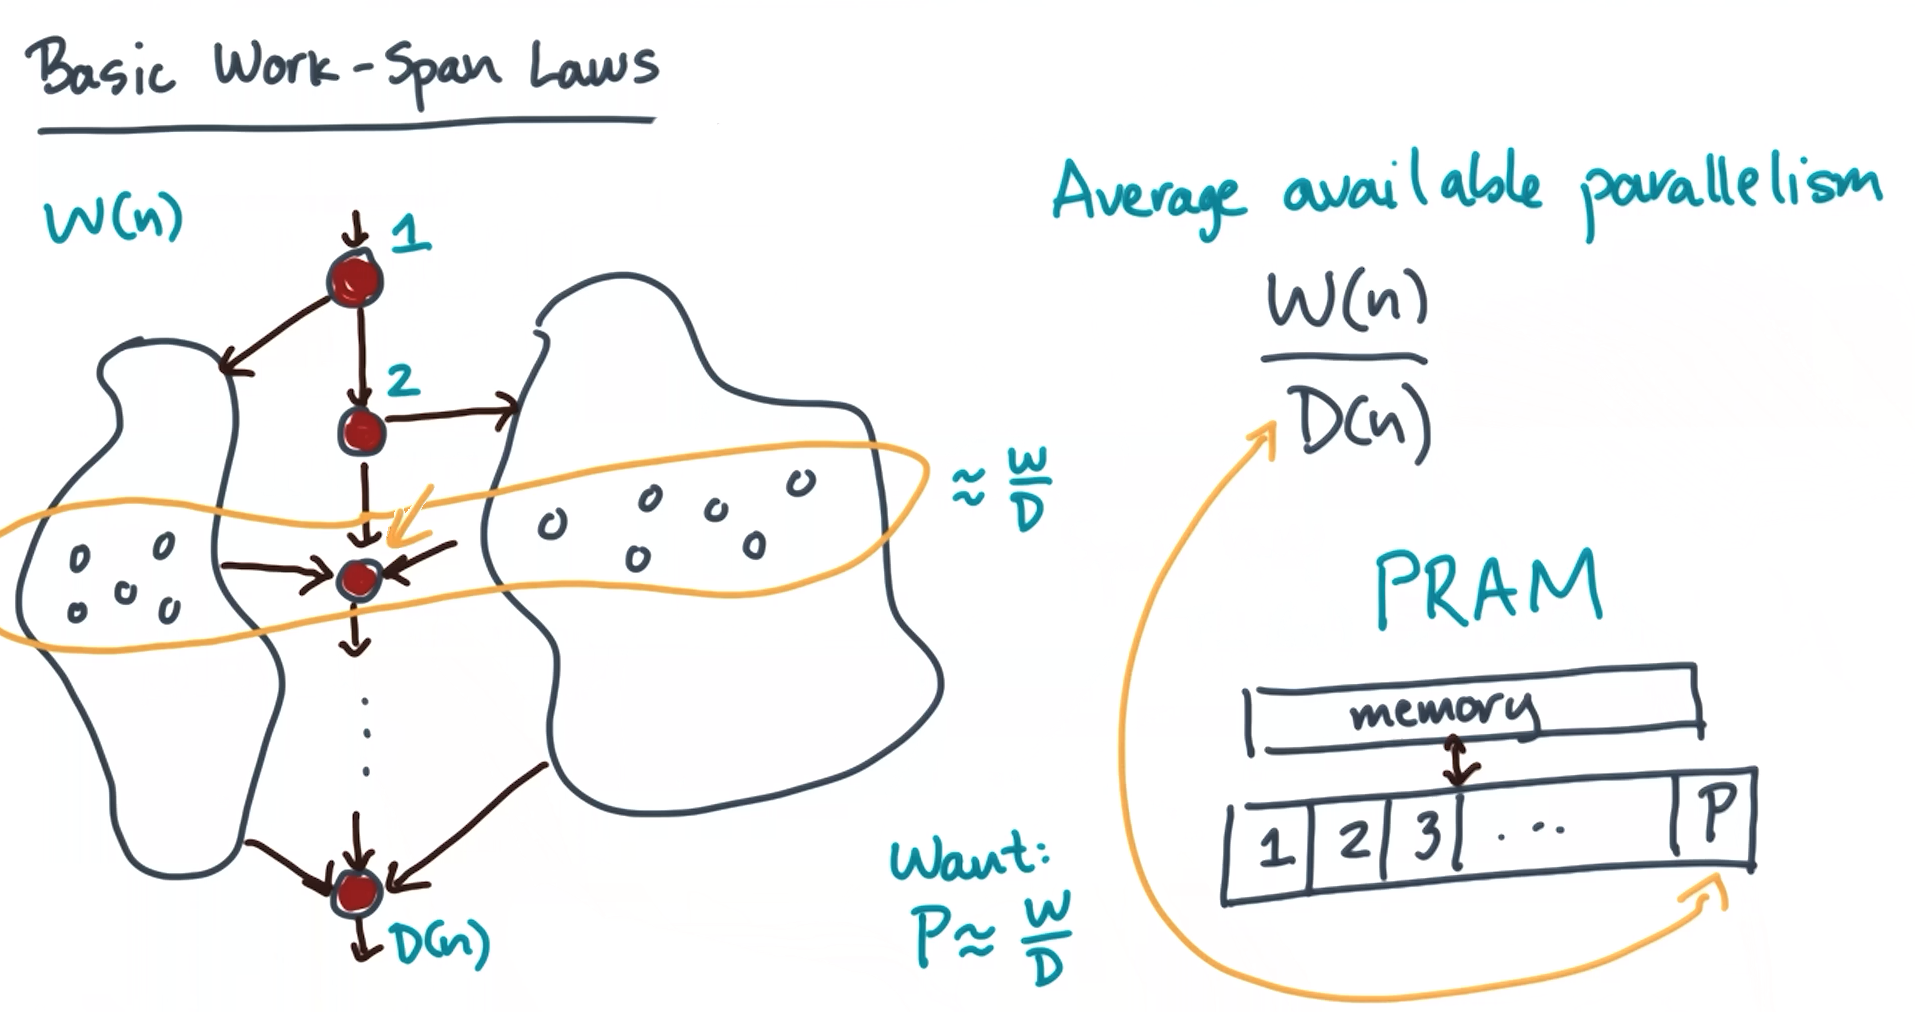 Basic Work-Span Laws
W(n)
1
2
≈ W/D
D(n)
Average available parallelism
W(n)
D(n)
PRAM
memory
1 2 3 ... P
Want:
P ≈ W/D